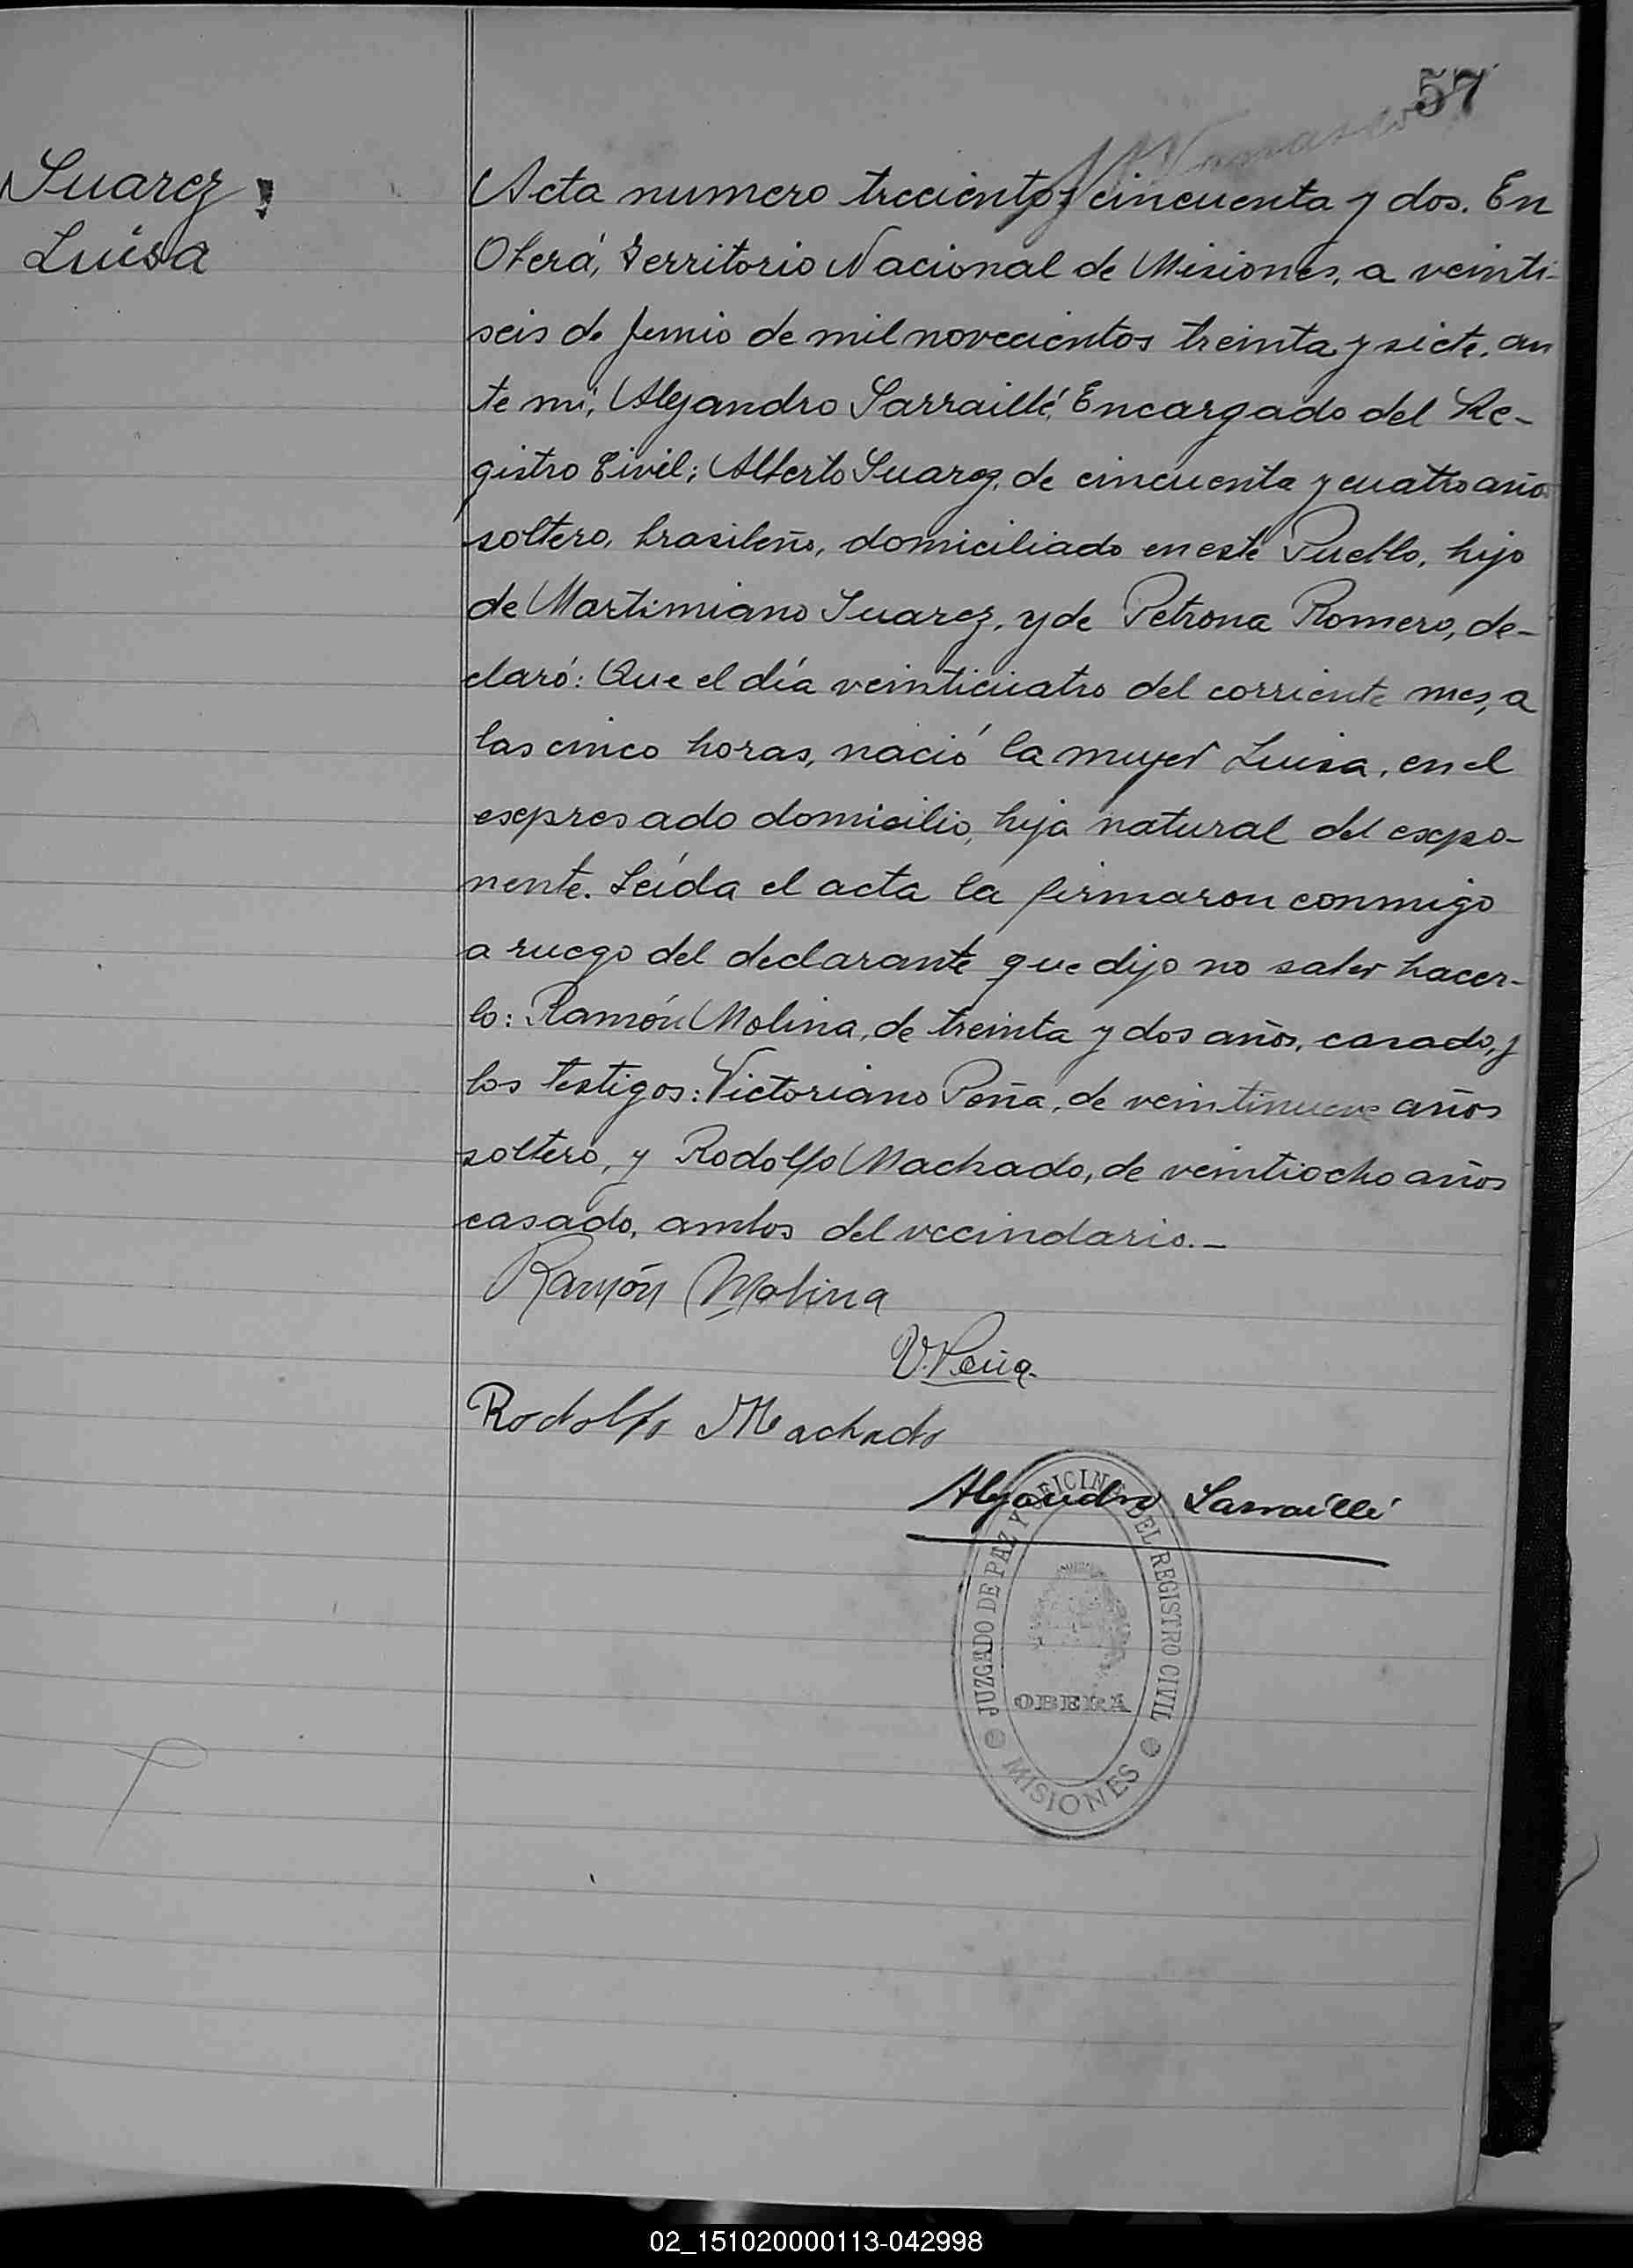 57
Suarez
Luisa
Acta numero trecientos cincuenta y dos. En
Oberá, Territorio Nacional de Misiones, a veinti-
seis de Junio de mil novecientos treinta y siete, an
te mí, Alejandro Sarraillé, Encargado del Re-
gistro Civil; Alberto Suarez, de cincuenta y cuatro años
soltero, brasileño, domiciliado en este Pueblo, hijo
de Martimiano Suarez, y de Petrona Romero, de-
claró: Que el día veinticuatro del corriente mes, a
las cinco horas, nació la mujer Luisa, en el
expresado domicilio, hija natural del expo-
nente. Leída el acta la firmaron conmigo
a ruego del declarante que dijo no saber hacer-
lo: Ramón Molina, de treinta y dos años, casado, y
los testigos: Victoriano Peña, de veintinueve años
soltero, y Rodolfo Machado, de veintiocho años
casado, ambos del vecindario.-
Ramón Molina
V. Peña
Rodolfo Machado
Alejandro Sarraillé
JUZGADO DE PAZ Y OFICINA DEL REGISTRO CIVIL
OBERA
MISIONES
02_151020000113-042998